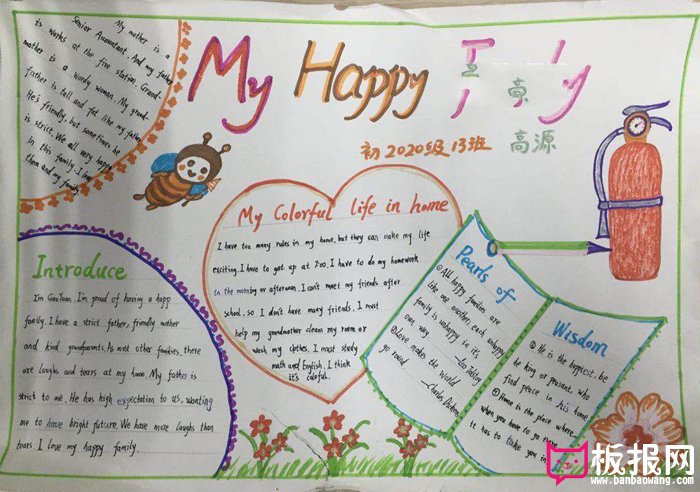 My Happy F y
初2020级13班
高源
My mother is a
Senior Accountant. And my father
is works at the fire station. Grand-
mother is a wordy woman. My grand-
father is tall and fat like my father
He's friendly, but sometimes he
is strict. We all very happy
in this family. I love
them and my family.
My Colorful life in home
I have too many rules in my home, but they can make my life
exciting. I have to get up at 7:00. I have to do my homework
in the or afternoon. I can't meet my friends after
school, so I don't have many friends. I must
help my grandmother clean my room or
wash my clothes. I must study
math and English. I think
it's
Introduce
I'm GaoYuan. I'm proud of having a happ
family. I have a strict father, friendly mother
and kind grandparents. As most other families, there
are laughs and tears at my home. My father is
strict to me. He has high expectation to us, wanting
me to have bright future. We have more laughs than
tears. I love my happy family.
Pearls of
①All happy families are
like one another, each unhappy
family is unhappy in it's
own way.
②Love makes the world
go round. —Charles
Wisdom
① He is the happiest, be
he king or peasant, who
find peace in his home
② Home is the place where,
when you have to go there,
it has to take you in.
板报网
www.banbaowang.com